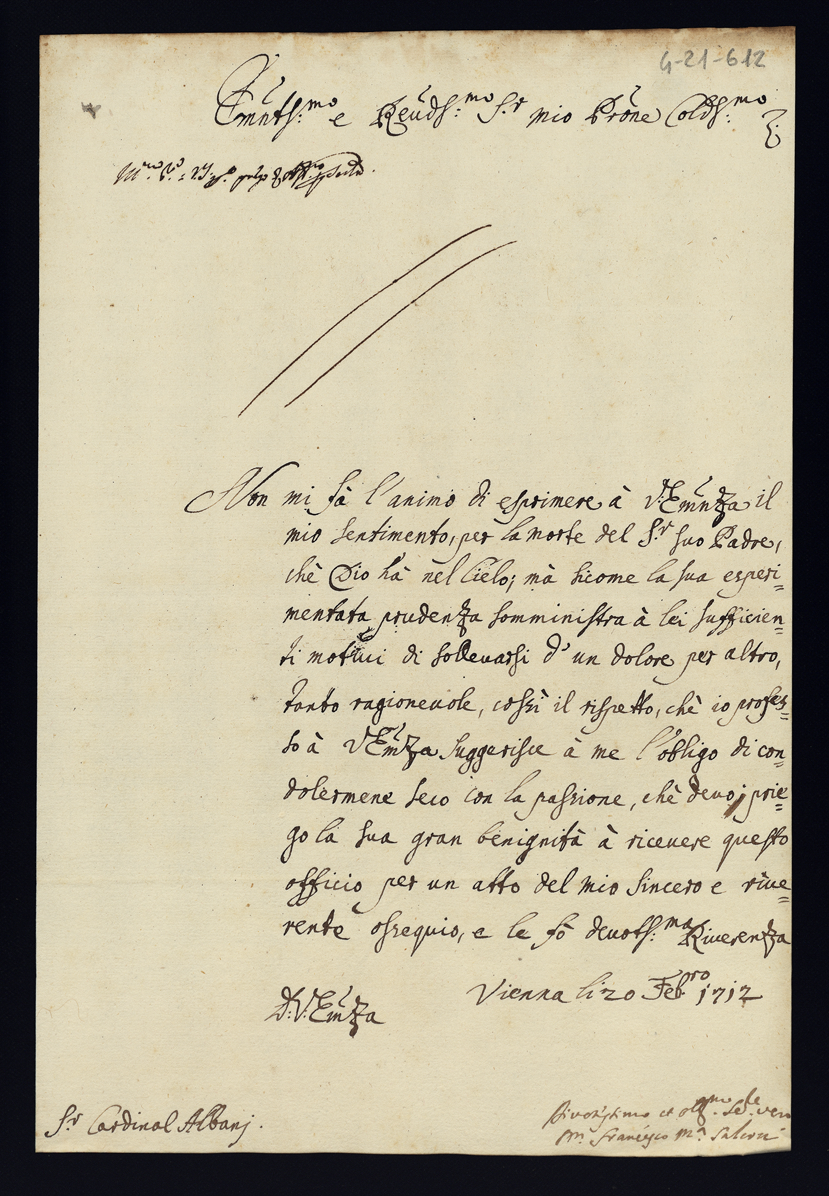 4-21-612
Emnts:mo e Reuds:mo Sr mio Prone Colds:mo
Non mi fà l'animo di esprimere à V: Emnza il
mio sentimento, per la morte del Sr suo Padre,
chè Dio hà nel Cielo; mà sicome la sua esperi=
mentata prudenza somministra à lei sufficien=
ti motiui di solleuarsi d'un dolore per altro,
tanto ragioneuole, cossì il rispetto, chè io profes=
so à V Emza suggerisce à me l'obligo di con=
dolermene seco con la passione, chè deuo; prie=
go la sua gran benignità à riceuere questo
officio per un atto del mio sincero e riue=
rente ossequio, e le fò deuots:ma Riuerenza
Vienna li 20 Febpro 1712
D: V: Emza
Sr Cardinal Albanj.
Diuotissimo et obmo Se:re vero
Francesco Ma